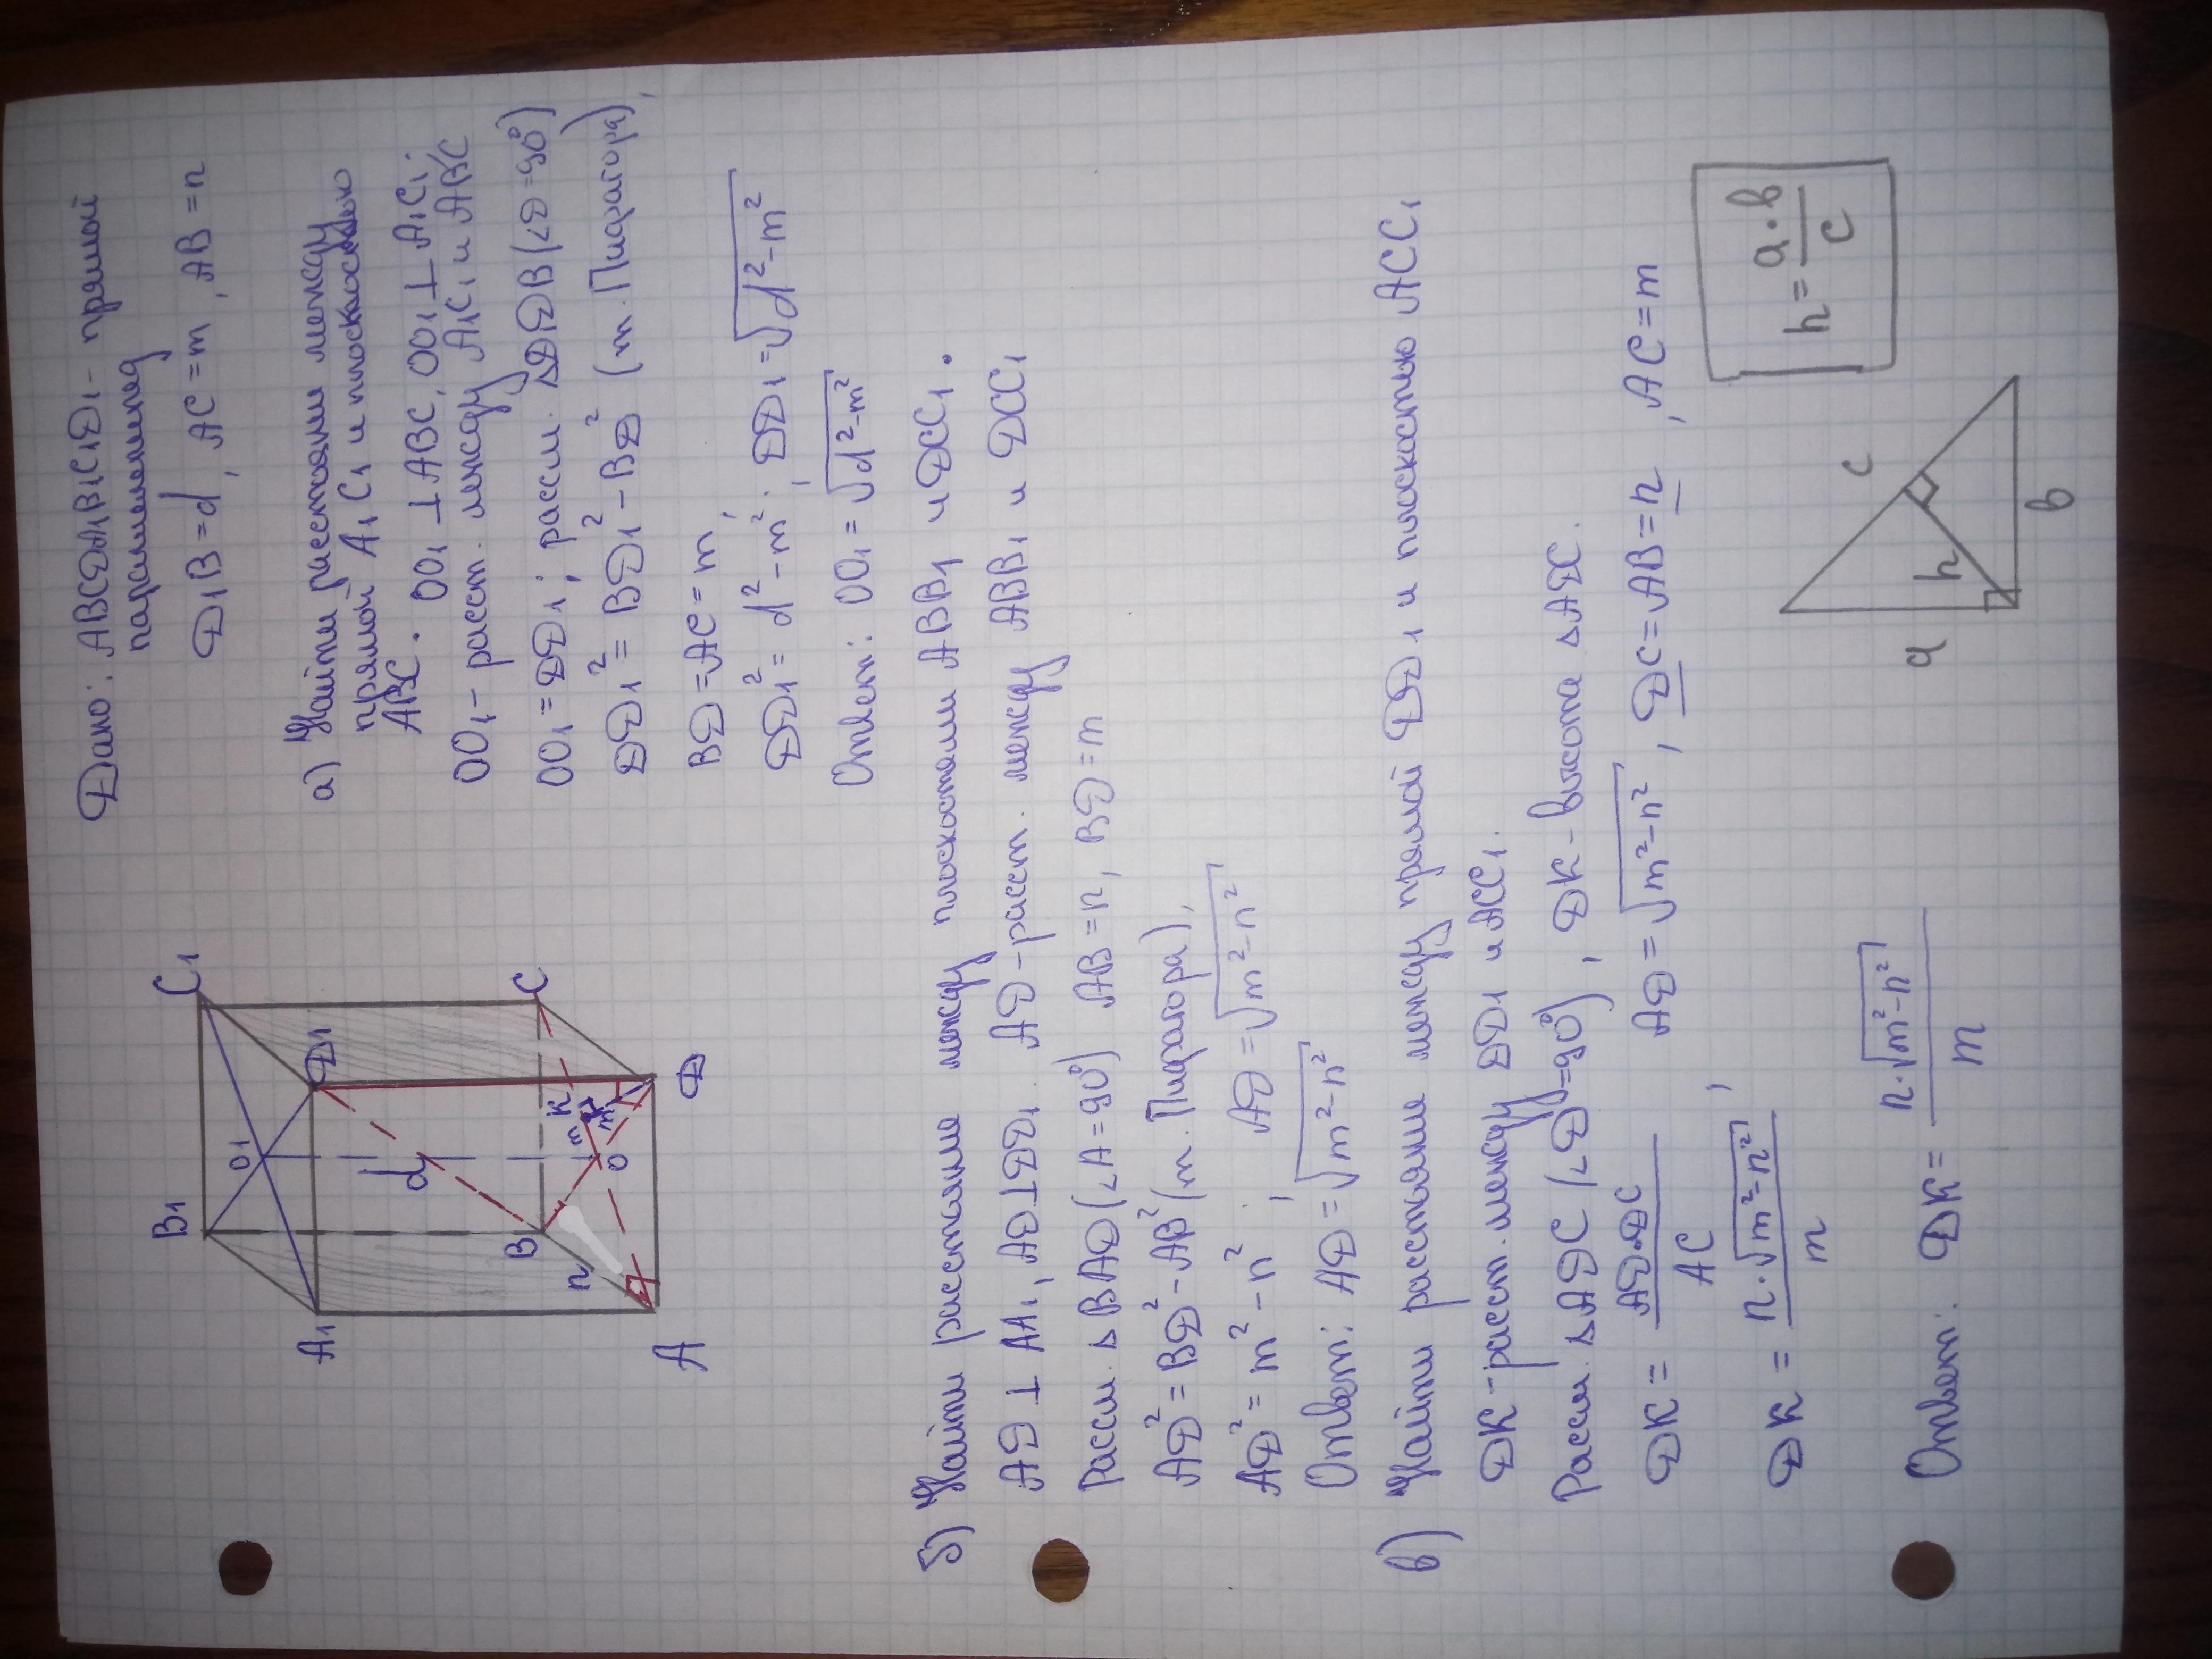 Дано: ABCDA₁B₁C₁D₁ - прямой
параллелепипед
D₁B = d, AC = m, AB = n
B₁
C₁
O₁
A₁
D₁
d
B
C
n
m
K
m
O
A
D
а) Найти расстояние между
прямой A₁C₁ и плоскостью
ABC. OO₁ ⊥ ABC, OO₁ ⊥ A₁C₁;
OO₁ - расст. между A₁C₁ и ABC
OO₁ = DD₁; рассм. △D₁DB (∠D = 90°)
DD₁² = BD₁² - BD² (т. Пифагора),
BD = AC = m,
DD₁² = d² - m²; DD₁ = √d² - m²
Ответ: OO₁ = √d² - m²
б) Найти расстояние между плоскостями ABB₁ и DCC₁.
AD ⊥ AA₁, AD ⊥ DD₁. AD - расст. между ABB₁ и DCC₁
Рассм. △BAD (∠A = 90°) AB = n, BD = m
AD² = BD² - AB² (т. Пифагора),
AD² = m² - n²; AD = √m² - n²
Ответ: AD = √m² - n²
в) Найти расстояние между прямой DD₁ и плоскостью ACC₁
DK - расст. между DD₁ и ACC₁.
Рассм. △ADC (∠D = 90°), DK - высота △ADC.
DK = AD·DC / AC, AD = √m² - n², DC = AB = n, AC = m
DK = n·√m² - n² / m
Ответ: DK = n·√m² - n² / m
a
h
c
b
h = a·b / c